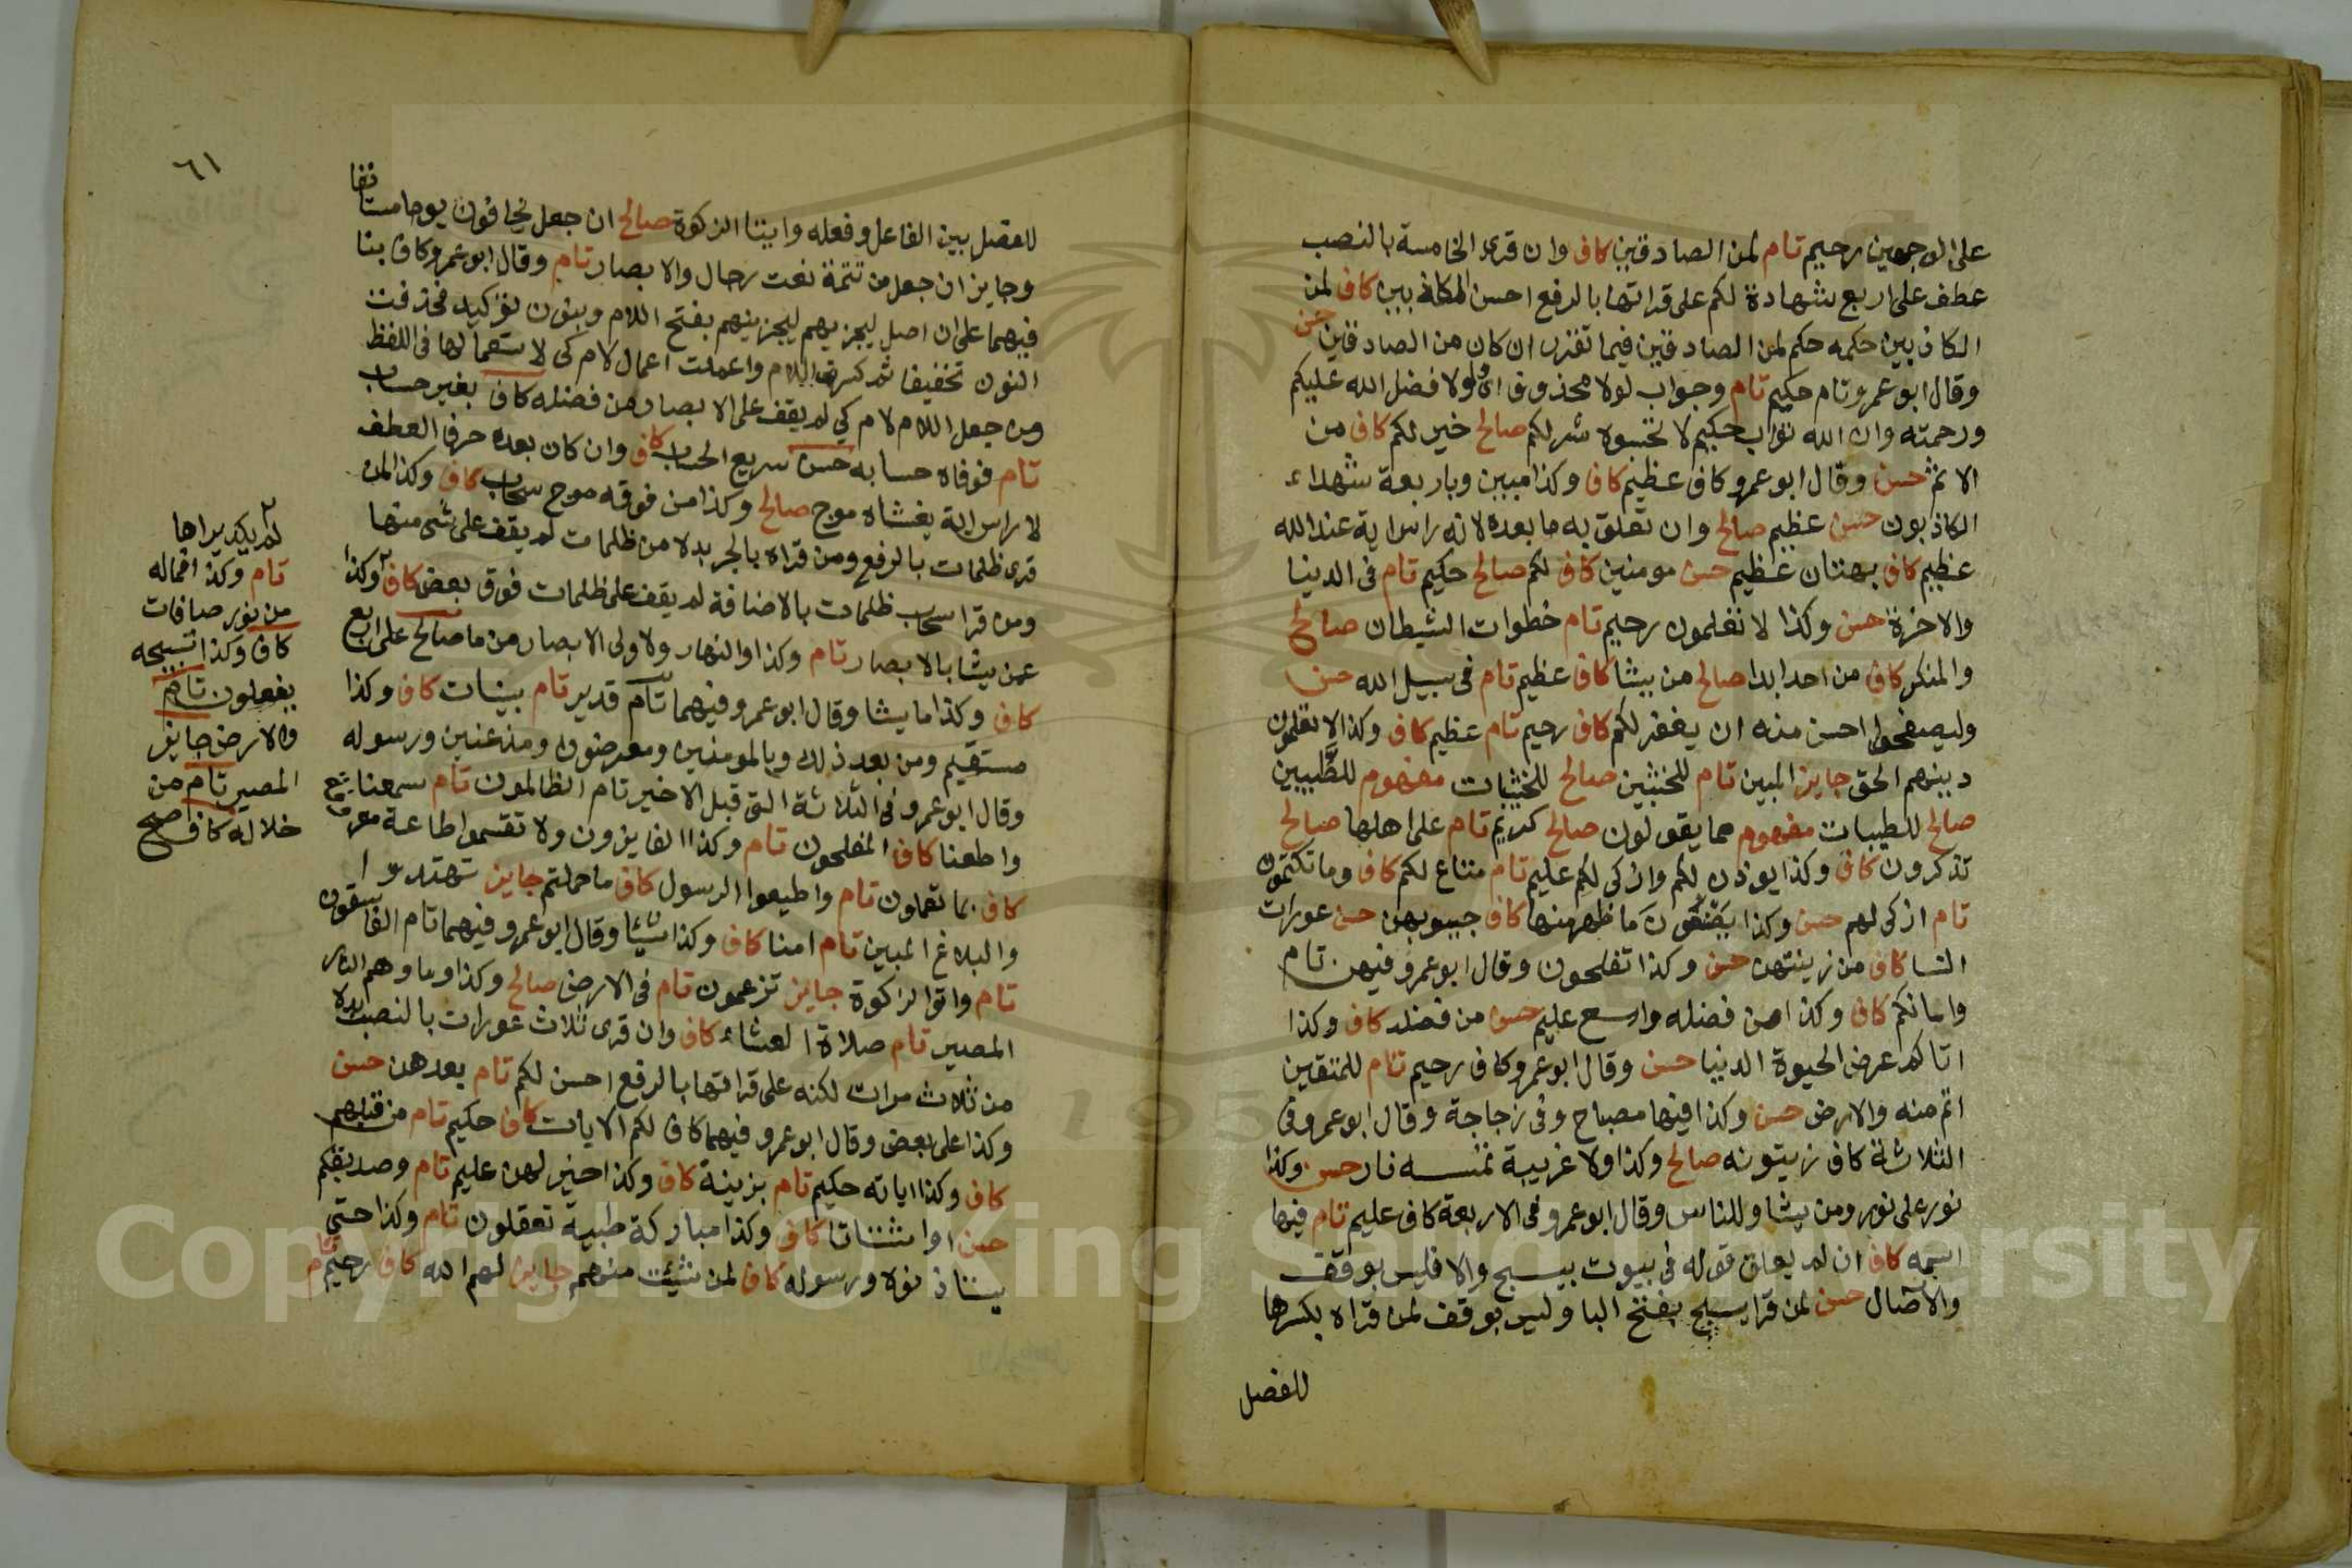 على الوجهين رحيم تام لمن الصادقين كاف وان قرى الخامسة بالنصب
عطف على اربع شهادة لكم على قراتها بالرفع احسن المكانه ببين كاف لمن
الكاذبين حكمه حكم لمن الصادقين فيما تقرر ان كان من الصادقين حسن
وقال ابو عمرو تام حكيم تام وجواب لولا محذوف اى لولا فضل الله عليكم
ورحمته وان الله تواب حكيم لا تحسبوه شر لكم صالح خير لكم كاف من
الاثم حسن وقال ابو عمرو كاف عظيم كاف وكذا مبين وباربعة شهداء
الكاذبون حسن عظيم صالح وان تعلق به ما بعده لانه راس اية عند الله
عظيم كاف بهتان عظيم حسن مومنين كاف لكم صالح حكيم تام فى الدنيا
والاخرة حسن وكذا لا تعلمون رحيم تام خطوات الشيطان صالح
والمنكر كاف من احد ابدا صالح من يشا كاف عظيم تام فى سبيل الله حسن
وليصفحوا احسن منه ان يغفر لكم كاف رحيم تام عظيم كاف وكذا لا تعلمون
دينهم الحق جايز المبين تام للخبثين صالح للخبيثات مفهوم للطيبين
صالح للطيبات مفهوم مما يقولون صالح كريم تام على اهلها صالح
تذكرون كاف وكذا يوذن لكم وازكى لكم عليم تام متاع لكم كاف وما تكتمون
تام ازكى لهم حسن وكذا يصنعون ما ظهر منها كاف جيوبهن حسن عورات
النسا كاف من زينتهن حسن وكذا تفلحون وقال ابو عمرو فيهن تام
وامائكم كاف وكذا من فضله واسع عليم حسن من فضله كاف وكذا
اتاكم عرض الحيوة الدنيا حسن وقال ابو عمرو كاف رحيم تام للمتقين
اتم منه والارض حسن وكذا فيها مصباح وفى زجاجة وقال ابو عمرو فى
الثلاثة كاف زيتونه صالح وكذا ولا غربية تمسسه نار حسن وكذا
نور على نور ومن يشا وللناس وقال ابو عمرو فى الاربعة كاف عليم تام فيها
اسمه كاف ان لم يعلق قوله فى بيوت بيسبح والا فليس بوقف
والآصال حسن لمن قرا يسبح بفتح البا وليس بوقف لمن قراه بكسرها
للفصل
٦١
للفصل بين الفاعل وفعله وايتا الزكوة صالح ان جعل يخافون يوما مستانفا
وجايز ان جعل من تتمة نعت رجال والابصار تام وقال ابو عمرو كاف بنا
فيهما على ان اصل ليجزيهم ليجزينهم بفتح اللام وبنون توكيد فحذفت
النون تخفيفا ثم كسرت اللام واعملت اعمال لام كى لاستعمالها فى اللفظ
ومن جعل اللام لام كي لم يقف على الابصار من فضله كاف بغير حساب
تام فوفاه حسابه حسن سريع الحساب كاف وان كان بعده حرف العطف
لا راس اية يغشاه موج صالح وكذا من فوقه موج سحاب كاف وكذا لمن
قرى ظلمات بالرفع ومن قراه بالجر بدلا من ظلمات لم يقف على شى منها
ومن قرا سحاب ظلمات بالاضافة لم يقف على ظلمات فوق بعض كاف وكذا
عن يشا بالابصار تام وكذا والنهار ولاولى الابصار من ما صالح على اربع
كاف وكذا ما يشا وقال ابو عمرو فيهما تام قدير تام بينات كاف وكذا
مستقيم ومن بعد ذلك وبالمومنين ومعرضون ومذعنين ورسوله
وقال ابو عمرو فى الثلاثة التى قبل الاخير تام الظالمون تام سمعنا
واطعنا كاف المفلحون تام وكذا الفايزون ولا تقسموا طاعة معروفة
كاف بما تعملون تام واطيعوا الرسول كاف ما حملتم جايز تهتدوا
والبلاغ المبين تام امنا كاف وكذا شيئا وقال ابو عمرو فيهما تام الفاسقون
تام واتوا الزكوة جايز تزعمون تام فى الارض صالح وكذا وماوهم النار
المصير تام صلاة العشاء كاف وان قرى ثلاث عورات بالنصب بدلا
من ثلاث مرات لكنه على قراتها بالرفع احسن لكم تام بعدهن حسن
وكذا على بعض وقال ابو عمرو فيهما كاف لكم الايات كاف حكيم تام من قبلهم
كاف وكذا اياته حكيم تام بزينة كاف وكذا خير لهن عليم تام وصديقكم
حسن او اشتاتا كاف وكذا مباركة طيبة تعقلون تام وكذا حتى
يستاذنوه ورسوله كاف لمن شئت منهم جايز لهم الله كاف رحيم تام
لم يكد يراها
تام وكذا فماله
من نور صافات
كاف وكذا تسبيحه
يفعلون تام
والارض جايز
المصير تام من
خلاله كاف صح
Copyright © King Saud University
195